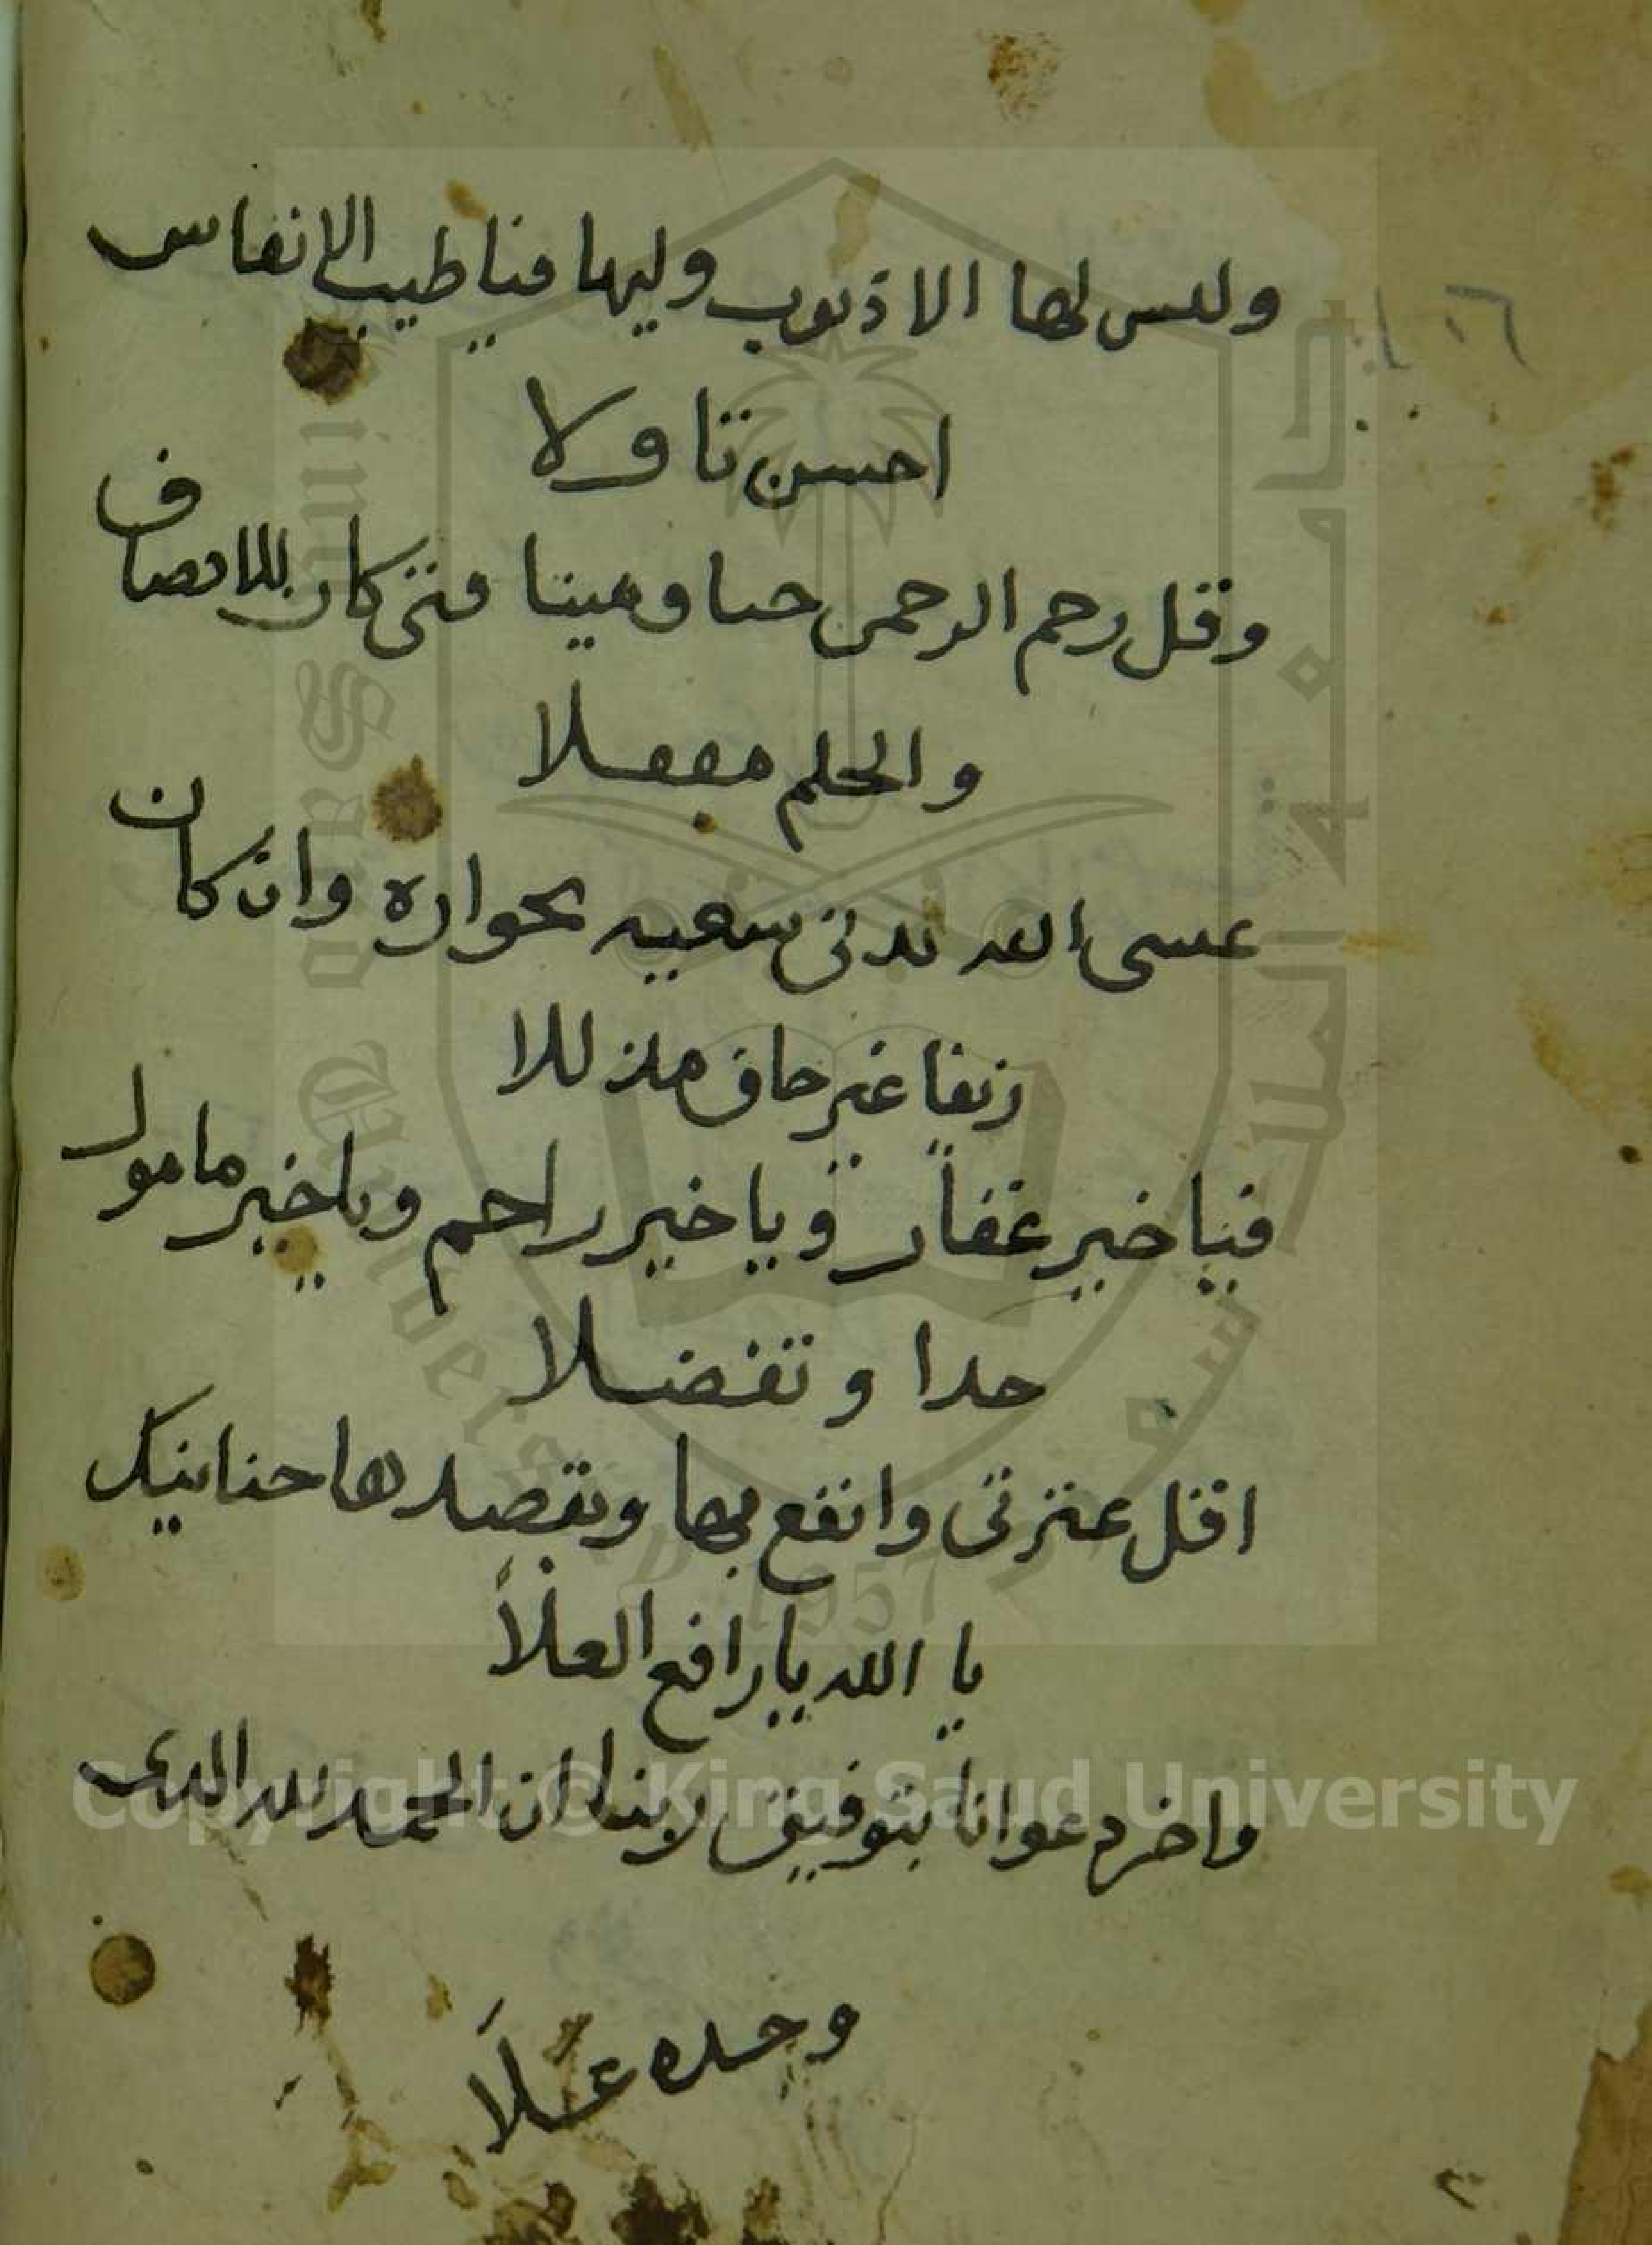 وليس لها الا ذنوب وليها فيا طيب الانفاس
احسن تاولا
وقل رحم الرحمن حيا وميتا فتى كان للانصاف
والحلم معقلا
عسى الله يدني سعيه بجواره وان كان
زيفا غير خاف مذللا
فيا خير غفار ويا خير راحم ويا خير مامول
جدا وتفضلا
اقل عثرتي وانفع بها وبقصدها حنانيك
يا الله يا رافع العلا
واخر دعوانا بتوفيق ربنا ان الحمد لله الذي
وحده علا
Copyright © King Saud University
جامعة الملك سعود
King Saud University
1957